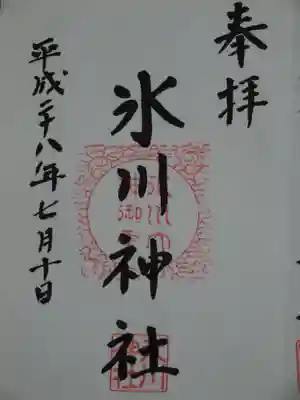 奉拝
氷川神社
平成二十八年七月十日